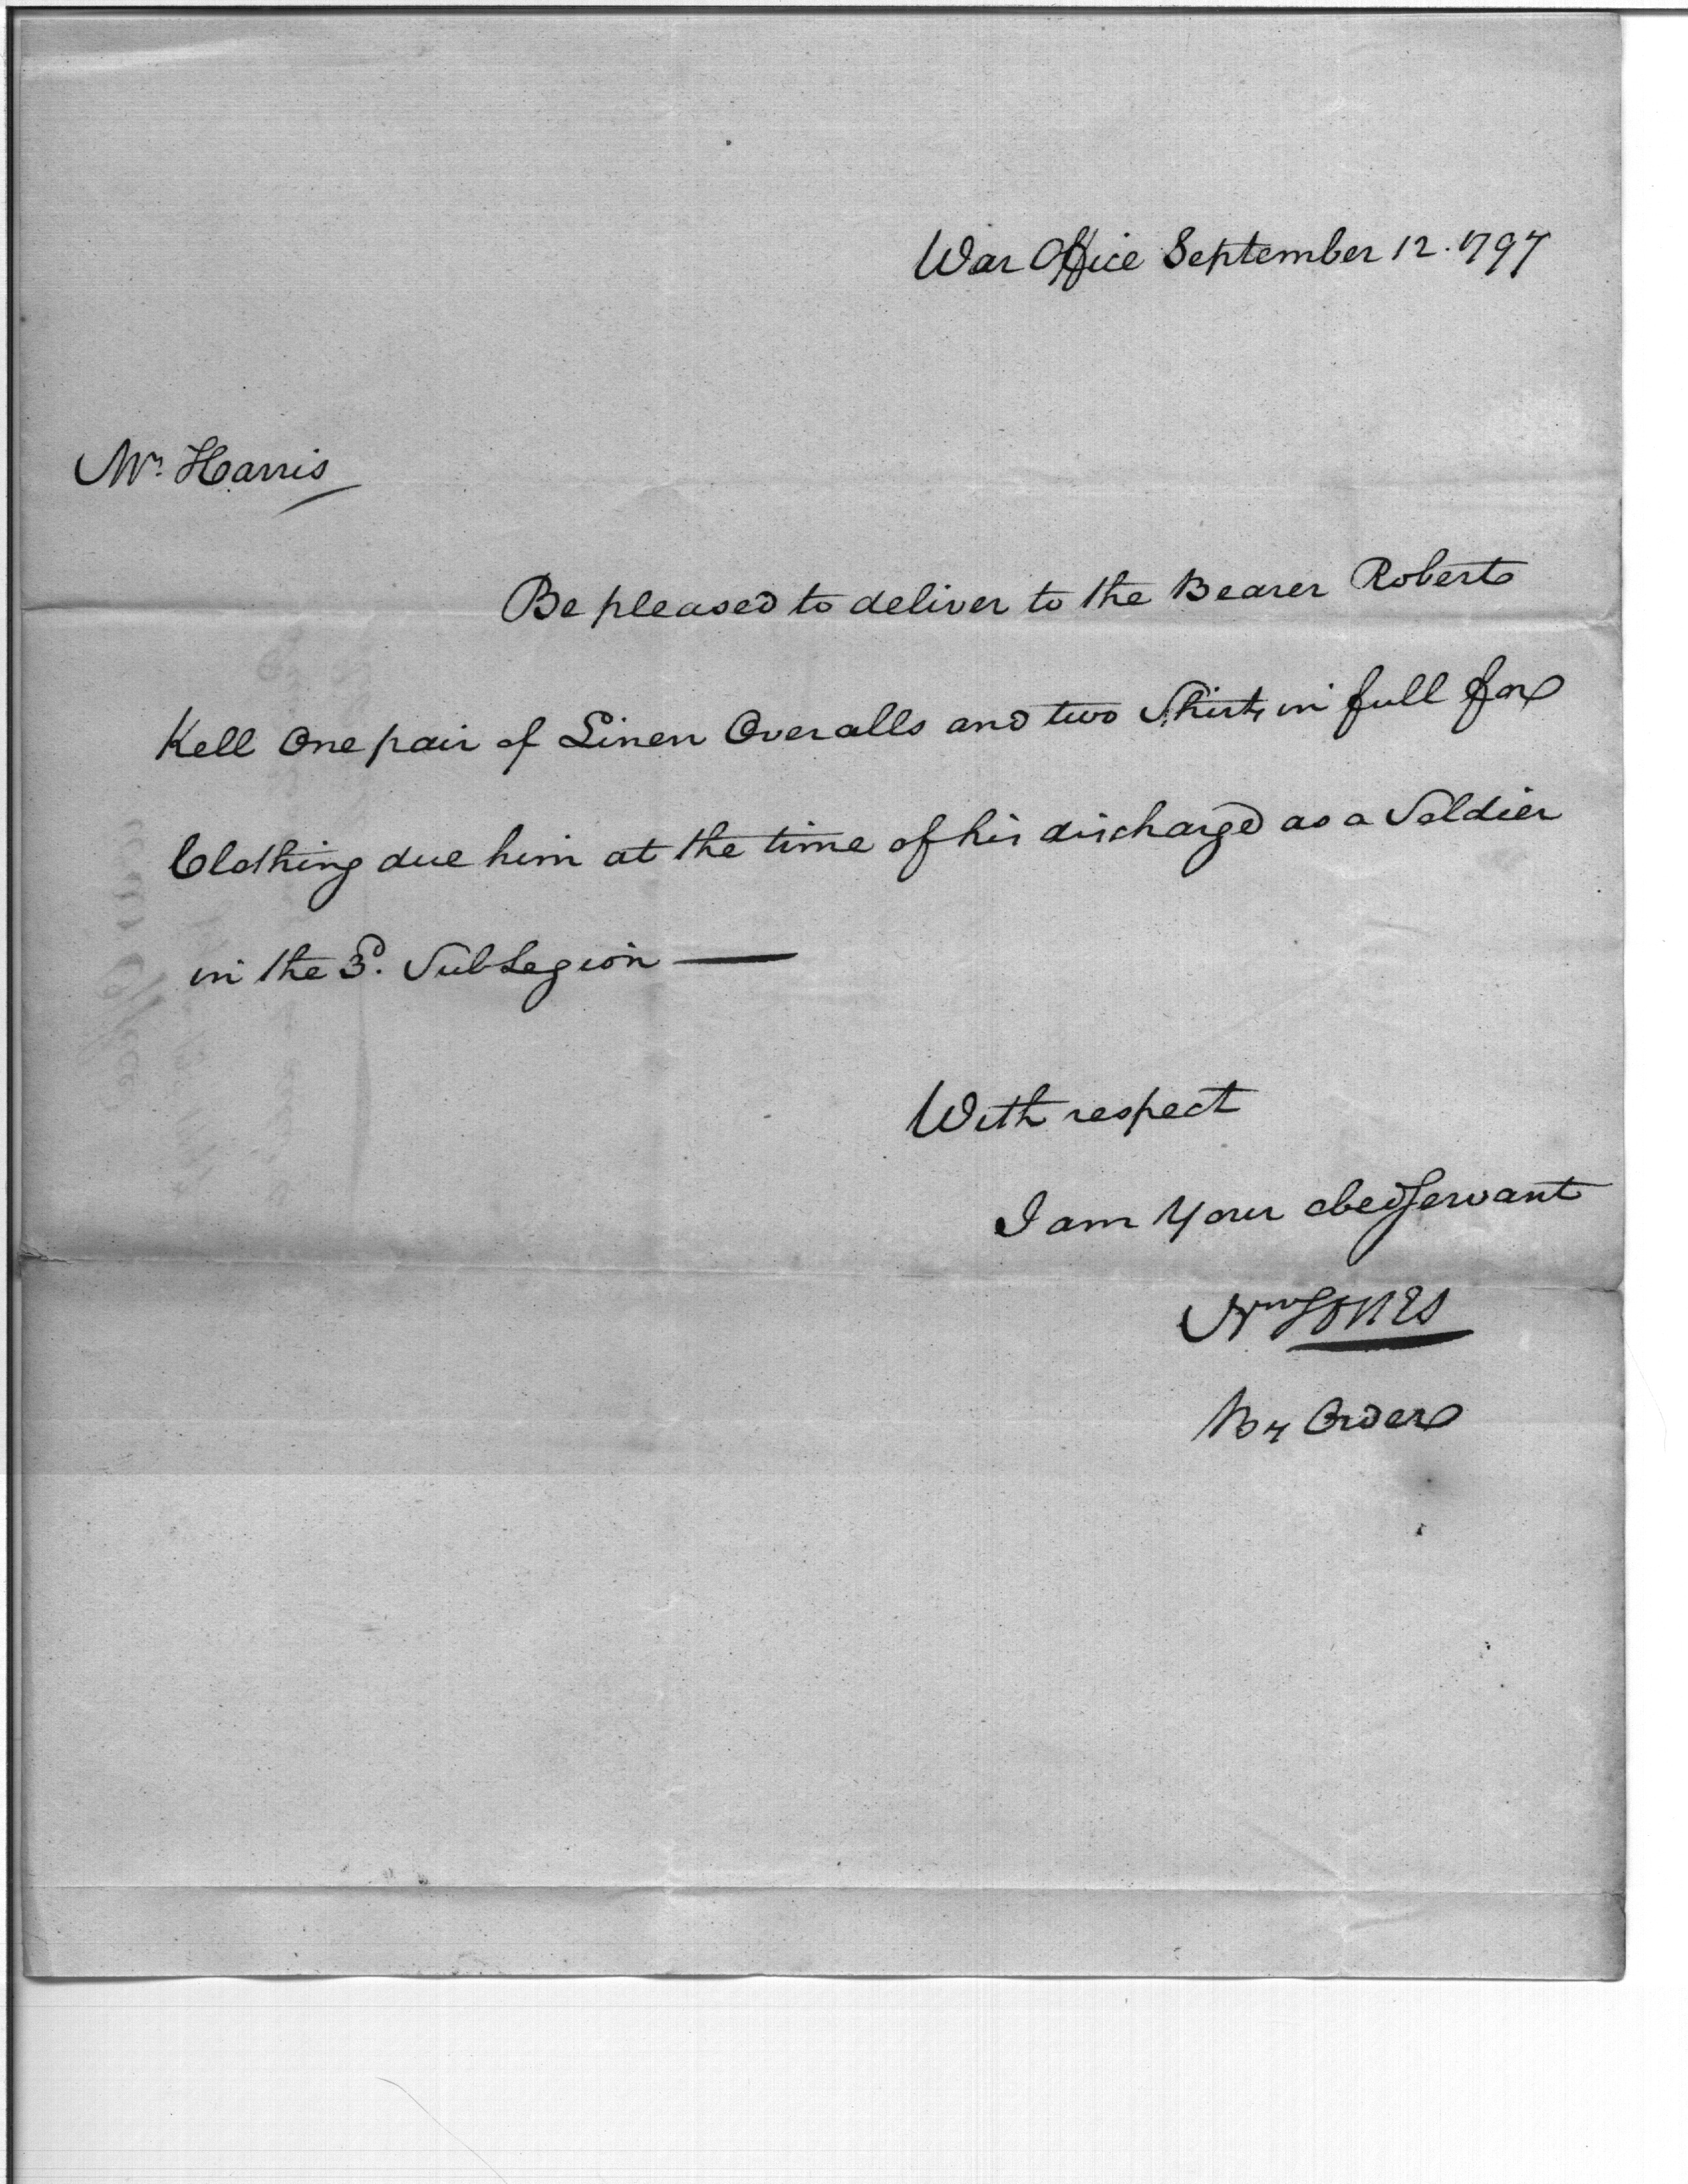 War Office September 12. 1797
Mr. Harris
Be pleased to deliver to the Bearer Robert
Kell One pair of Linen Overalls and two Shirts in full for
Clothing due him at the time of his discharge as a Soldier
in the 3d. SubLegion —
With respect
I am Your obed Servant
Wm Jones
By Order